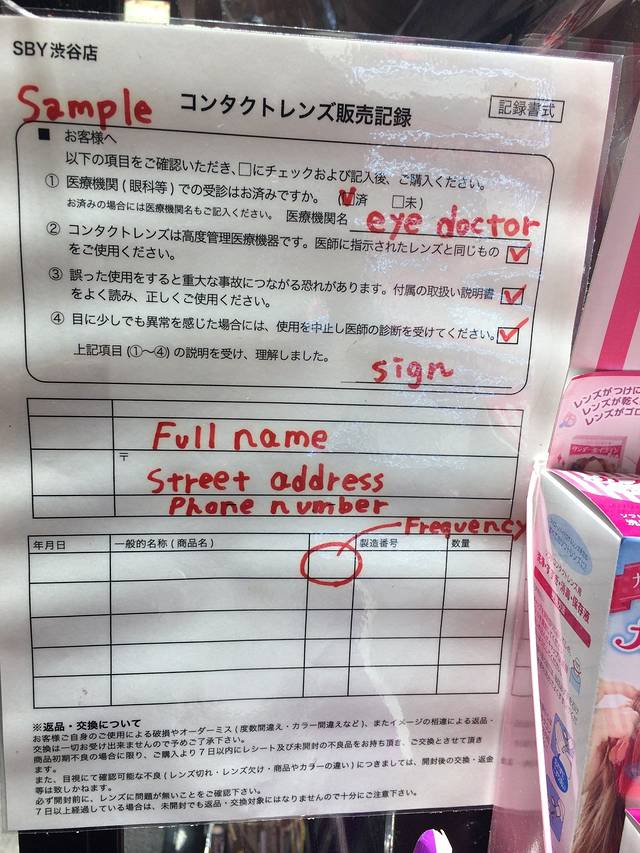 SBY渋谷店
Sample コンタクトレンズ販売記録 記録書式
■ お客様へ
以下の項目をご確認いただき、□にチェックおよび記入後、ご購入ください。
① 医療機関(眼科等)での受診はお済みですか。(☑済 □未)
お済みの場合には医療機関名もご記入ください。 医療機関名 eye doctor
② コンタクトレンズは高度管理医療機器です。医師に指示されたレンズと同じもの
をご使用ください。
③ 誤った使用をすると重大な事故につながる恐れがあります。付属の取扱い説明書
をよく読み、正しくご使用ください。
④ 目に少しでも異常を感じた場合には、使用を中止し医師の診断を受けてください。
上記項目(①〜④)の説明を受け、理解しました。
sign
Full name
〒
Street address
Phone number
Frequency
年月日 一般的名称(商品名) 製造番号 数量
※返品・交換について
お客様ご自身のご使用による破損やオーダーミス(度数間違え・カラー間違えなど)、またイメージの相違による返品・
交換は一切お受け出来ませんので予めご了承下さい。
商品初期不良の場合に限り、ご購入より7日以内にレシート及び未開封の不良品をお持ち頂き、ご交換とさせて頂き
ます。
また、目視にて確認可能な不良(レンズ切れ・レンズ欠け・商品やカラーの違い)につきましては、開封後の交換・返金
等は致しかねます。
必ず開封前に、レンズに問題が無いことをご確認下さい。
7日以上経過している場合は、未開封でも返品・交換対象にはなりませんので十分にご注意下さい。
レンズがつけに
レンズが乾く
レンズがゴロ